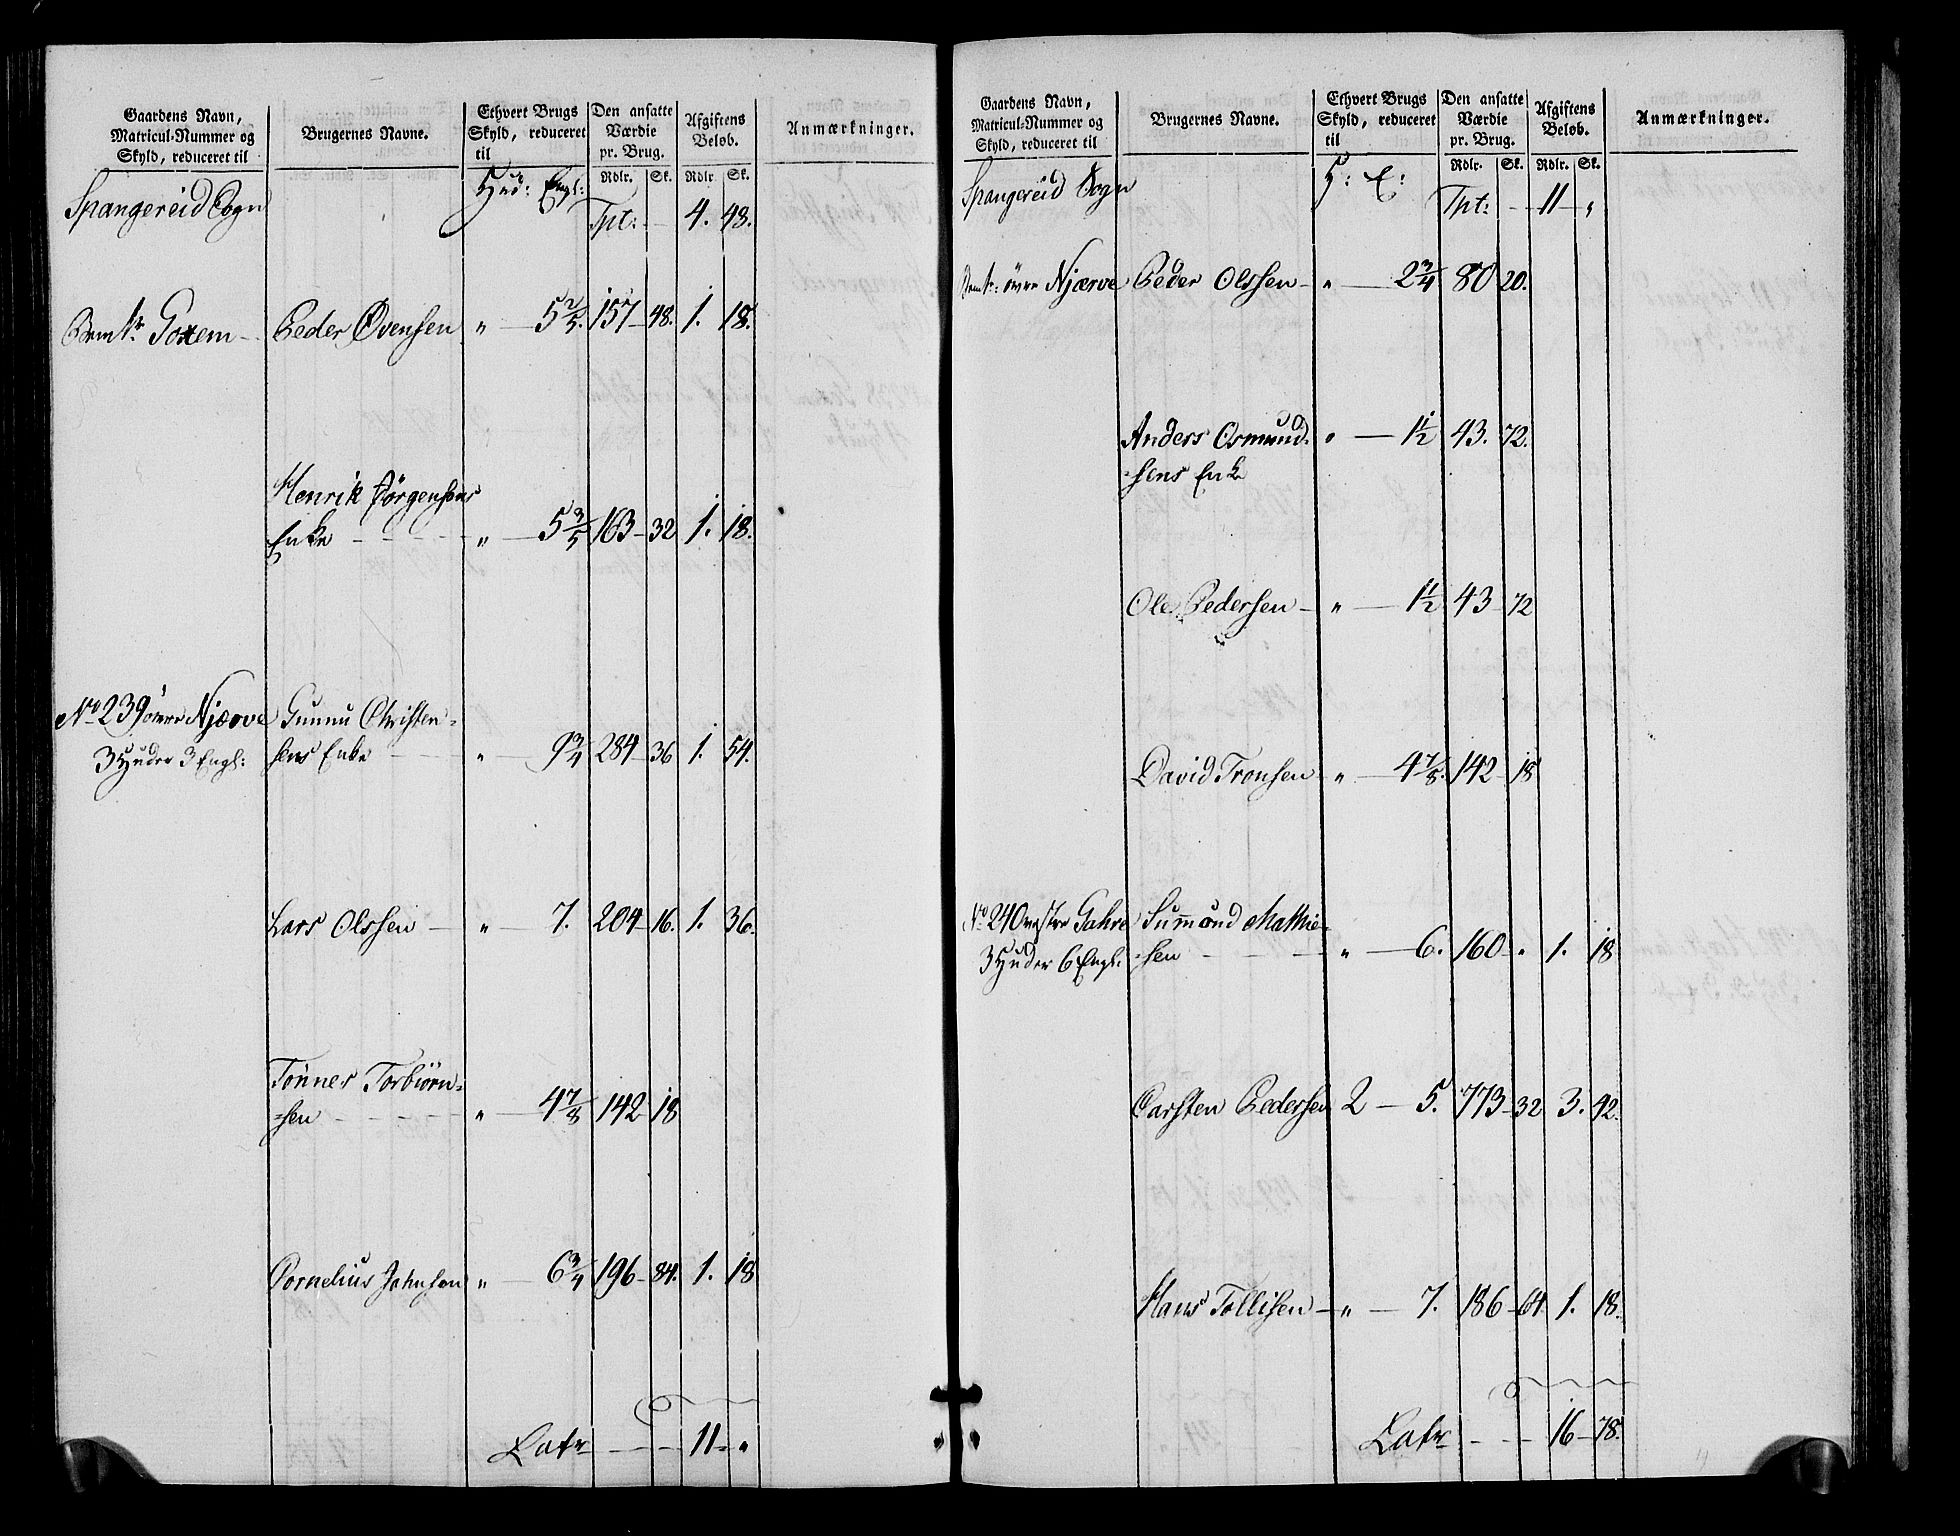 Gaardens Navn,
Matricul-Nummer og
Skyld, reduceret til
Brugernes Navne.
Ethvert Brugs
Skyld, reduceret
til
Den ansatte
Værdie
pr. Brug.
Afgiftens
Beløb.
Anmærkninger.
Rdlr. Sk. Rdlr. Sk.
Spangereid Sogn Hud: Engl:
Tpt: — 4. 48.
Goxem — Peder Evensen " — 5 2/5. 157 — 48. 1. 18.
Henrik Jörgensens
Enke — " — 5 3/5 163 — 32 1. 18.
No 239 övre Njærve Gunnu Christen-
3 Huder 3 Engl: sens Enke — " — 9 3/4 284 — 36 1. 54.
Lars Olssen — " — 7. 204 — 16. 1. 36.
Tönnes Torbiörn-
-sen — " — 4 7/8 142 18
Cornelius Johnsen " — 6 3/4 196 — 84. 1. 18
Latr — 11 — "
Gaardens Navn,
Matricul-Nummer og
Skyld, reduceret til
Brugernes Navne.
Ethvert Brugs
Skyld, reduceret
til
Den ansatte
Værdie
pr. Brug.
Afgiftens
Beløb.
Anmærkninger.
Rdlr. Sk. Rdlr. Sk.
Spangereid Sogn H: E:
Tpt: — 11 — "
övre Njærve Peder Olssen — " — 2 3/4 80 20.
Anders Osmund- " — 1 1/2 43. 72.
-sens Enke
Ole Pedersen — " — 1 1/2 43 — 72
David Tronsen " — 4 7/8. 142 — 18
No 240 vestre Gahre Summund Mathie-
3 Huder 6 Engl: -sen — " — 6. 160 — " 1. 18
Carsten Pedersen 2 — 5. 773 — 32 3. 42.
Hans Tollisen — " — 7. 186 — 64. 1. 18.
Latr — 16 — 78.